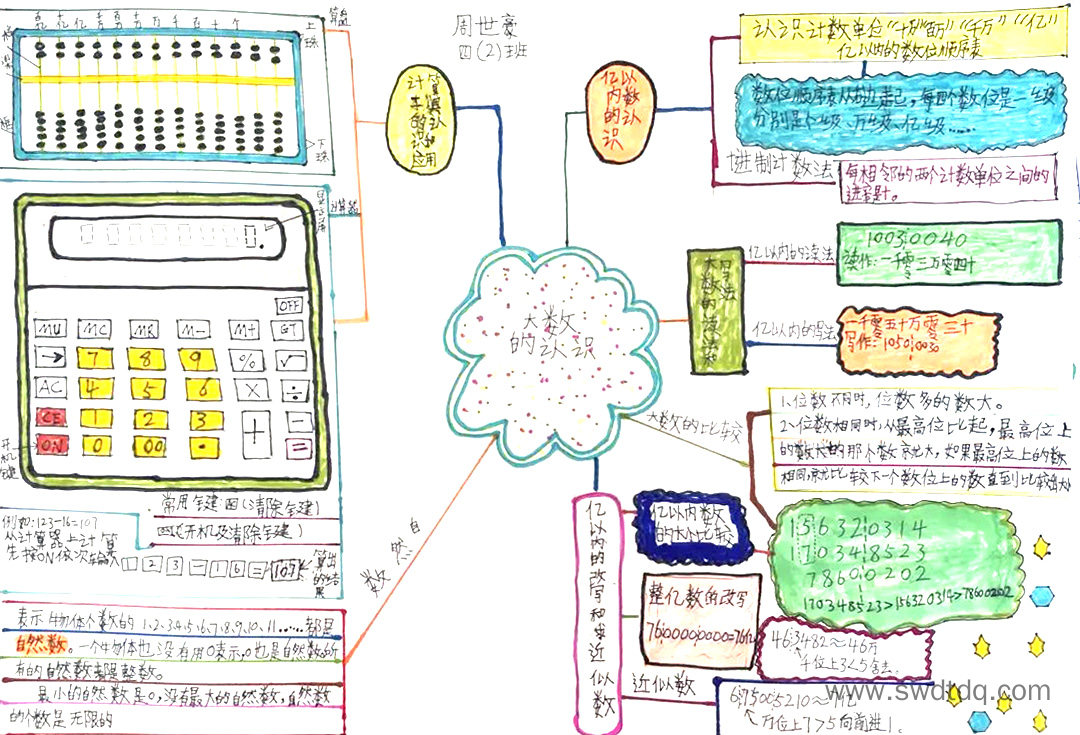 周世豪
四(2)班
大数
的认识
计算
亿以
内数
的认
识
认识计数单位“十万”“百万”“千万”“亿”
亿以内的数位顺序表
数位顺序表从右边起,每四个数位是一级
分别是个级、万级、亿级……
十进制计数法
每相邻的两个计数单位之间的
进率是十。
亿以内的读法
10030040
读作:一千零三万零四十
亿以内的写法
一千零五十万零三十
写作:10500030
大数的比较
1、位数不同时,位数多的数大。
2、位数相同时,从最高位比起,最高位上
的数大的那个数就大,如果最高位上的数
相同,就比较下一个数位上的数直到比较出大小
亿以内数
的大小比较
156320314
170348523
78600202
亿以内的改写和求近似数
整亿数的改写
463482≈46万
千位上3<5舍去
近似数
万位上7>5向前进1。
www.swdtdq.com
算盘
上珠
下珠
计算器
显示屏
OFF
MU MC MR M- M+ GT
→ 7 8 9 % √
AC 4 5 6 × ÷
CE 1 2 3 + -
ON 0 00 • =
开机键
常用键:CE(清除键)
ON(开机及清除键)
例如:123-16=107
从计算器上计算
先按ON依次输入
1 2 3 - 1 6 = 107
算出的结果
自然数
表示物体个数的1、2、3、4、5、6、7、8、9、10、11……都是
自然数。一个物体也没有用0表示,0也是自然数,所
有的自然数都是整数。
最小的自然数是0,没有最大的自然数,自然数
的个数是无限的